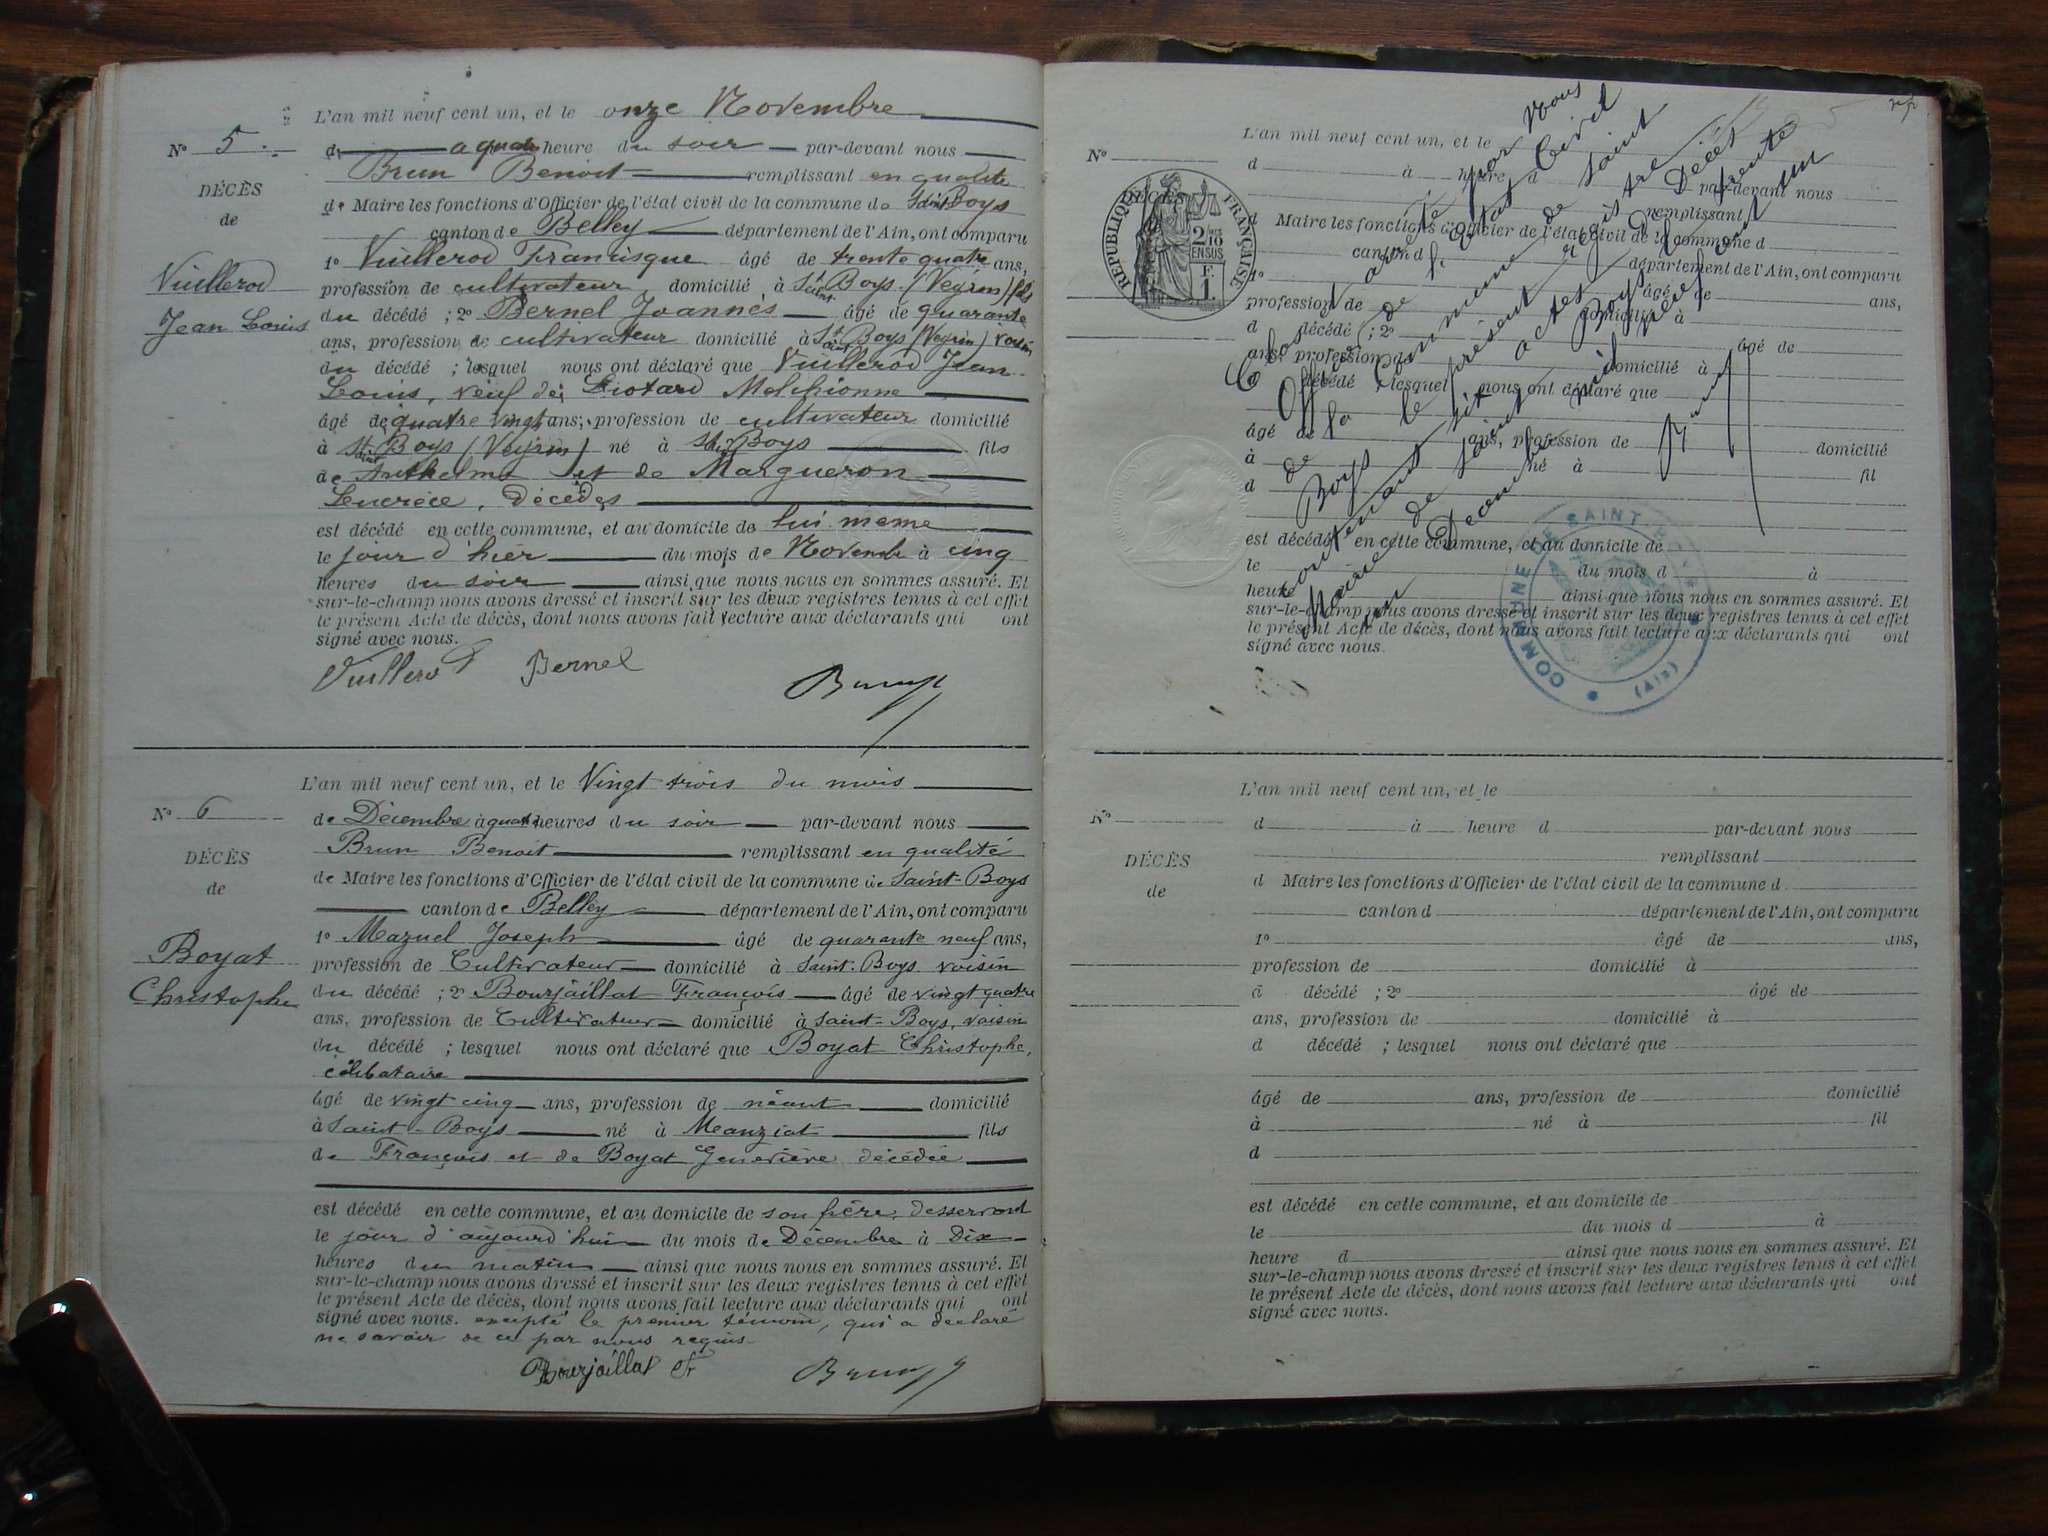 L'an mil neuf cent un, et le onze Novembre
No 5
d à quatre heure du soir par-devant nous
Brun Benoit remplissant en qualité
DÉCÈS
de Maire les fonctions d'Officier de l'état civil de la commune de Saint Boys
de
canton de Belley département de l'Ain, ont comparu
1o Vuillerod Francisque âgé de trente quatre ans,
Vuillerod
profession de cultivateur, domicilié à St Boys (Veyrin) fils
Jean Louis
du décédé ; 2o Bernel Joannès âgé de quarante
ans, profession de cultivateur domicilié à St Boys (Veyrin) voisin
du décédé ; lesquel nous ont déclaré que Vuillerod Jean
Louis, veuf de Liotard Melchionne
âgé de quatre vingt ans, profession de cultivateur domicilié
à St Boys (Veyrin) né à St Boys fils
de Anthelme et de Margueron
Lucrèce, décédés
est décédé en cette commune, et au domicile de lui même
le jour d'hier du mois de Novembre à cinq
heures du soir ainsi que nous nous en sommes assuré. Et
sur-le-champ nous avons dressé et inscrit sur les deux registres tenus à cet effet
le présent Acte de décès, dont nous avons fait lecture aux déclarants qui ont
signé avec nous.
Vuillerod Bernel Brun
L'an mil neuf cent un, et le Vingt trois du mois
No 6
de Décembre à quatre heures du soir par-devant nous
Brun Benoit remplissant en qualité
DÉCÈS
de Maire les fonctions d'Officier de l'état civil de la commune de Saint-Boys
de
canton de Belley département de l'Ain, ont comparu
1o Mazuel Joseph âgé de quarante neuf ans,
Boyat
profession de Cultivateur domicilié à Saint-Boys voisin
Christophe
du décédé ; 2o Bourjaillat François âgé de vingt quatre
ans, profession de Cultivateur domicilié à Saint-Boys, voisin
du décédé ; lesquel nous ont déclaré que Boyat Christophe,
célibataire
âgé de vingt cinq ans, profession de néant domicilié
à Saint-Boys né à Manziat fils
de François et de Boyat Geneviève décédée
est décédé en cette commune, et au domicile de son frère, desservant
le jour d'aujourd'hui du mois de Décembre à Dix
heures du matin ainsi que nous nous en sommes assuré. Et
sur-le-champ nous avons dressé et inscrit sur les deux registres tenus à cet effet
le présent Acte de décès, dont nous avons fait lecture aux déclarants qui ont
signé avec nous. excepté le premier témoin, qui a déclaré
ne savoir de ce par nous requis
Bourjaillat fr Brun
L'an mil neuf cent un, et le
No
d à heure d par-devant nous
DÉCÈS
remplissant
d Maire les fonctions d'Officier de l'état civil de la commune d
canton d département de l'Ain, ont comparu
1o âgé de ans,
profession de domicilié à
d décédé ; 2o âgé de
ans, profession de domicilié à
d décédé ; lesquel nous ont déclaré que
âgé de ans, profession de domicilié
à né à fil
d
est décédé en cette commune, et au domicile de
le du mois d à
heure d ainsi que nous nous en sommes assuré. Et
sur-le-champ nous avons dressé et inscrit sur les deux registres tenus à cet effet
le présent Acte de décès, dont nous avons fait lecture aux déclarants qui ont
signé avec nous.
RÉPUBLIQUE FRANÇAISE
2/10 EN SUS
F. 1
Clos et arrêté par Nous
Officier de l'Etat Civil
de la Commune de Saint
Boys le présent registre
contenant six actes de Décès
Mairie de Saint Boys le trente
un Décembre mil neuf cent un
Brun
COMMUNE DE SAINT-BOYS
(Ain)
L'an mil neuf cent un, et le
No
d à heure d par-devant nous
remplissant
DÉCÈS
d Maire les fonctions d'Officier de l'état civil de la commune d
de
canton d département de l'Ain, ont comparu
1o âgé de ans,
profession de domicilié à
d décédé ; 2o âgé de
ans, profession de domicilié à
d décédé ; lesquel nous ont déclaré que
âgé de ans, profession de domicilié
à né à fil
d
est décédé en cette commune, et au domicile de
le du mois d à
heure d ainsi que nous nous en sommes assuré. Et
sur-le-champ nous avons dressé et inscrit sur les deux registres tenus à cet effet
le présent Acte de décès, dont nous avons fait lecture aux déclarants qui ont
signé avec nous.